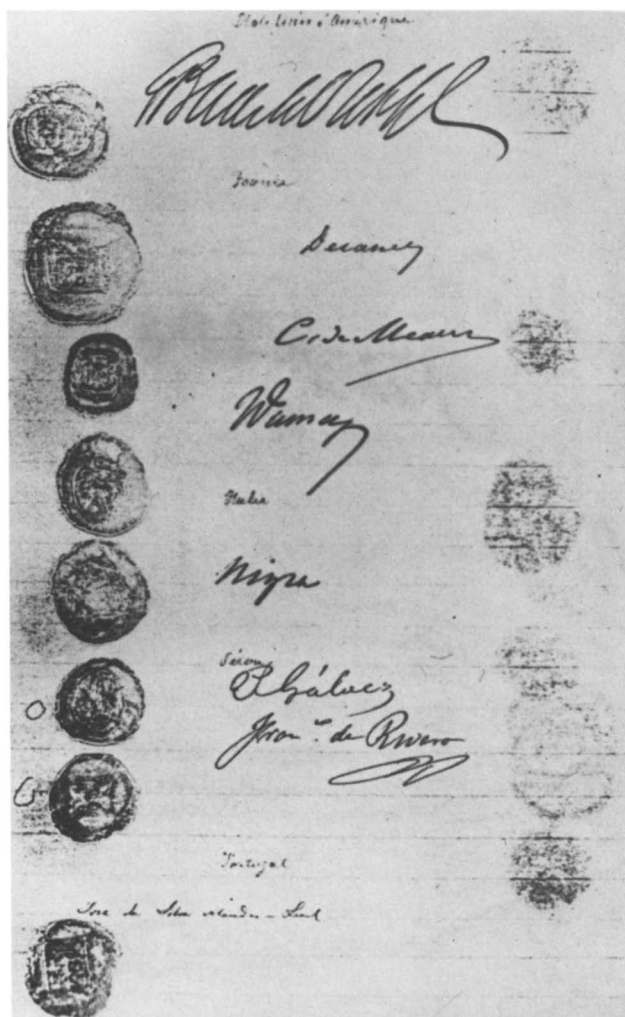 Etats Unis d'Amérique
France
Decazes
C. de Meaux
Dumas
Italie
Nigra
Pérou
P. Gálvez
Fran.co de Rivero
Portugal
José da Silva Mendes-Leal